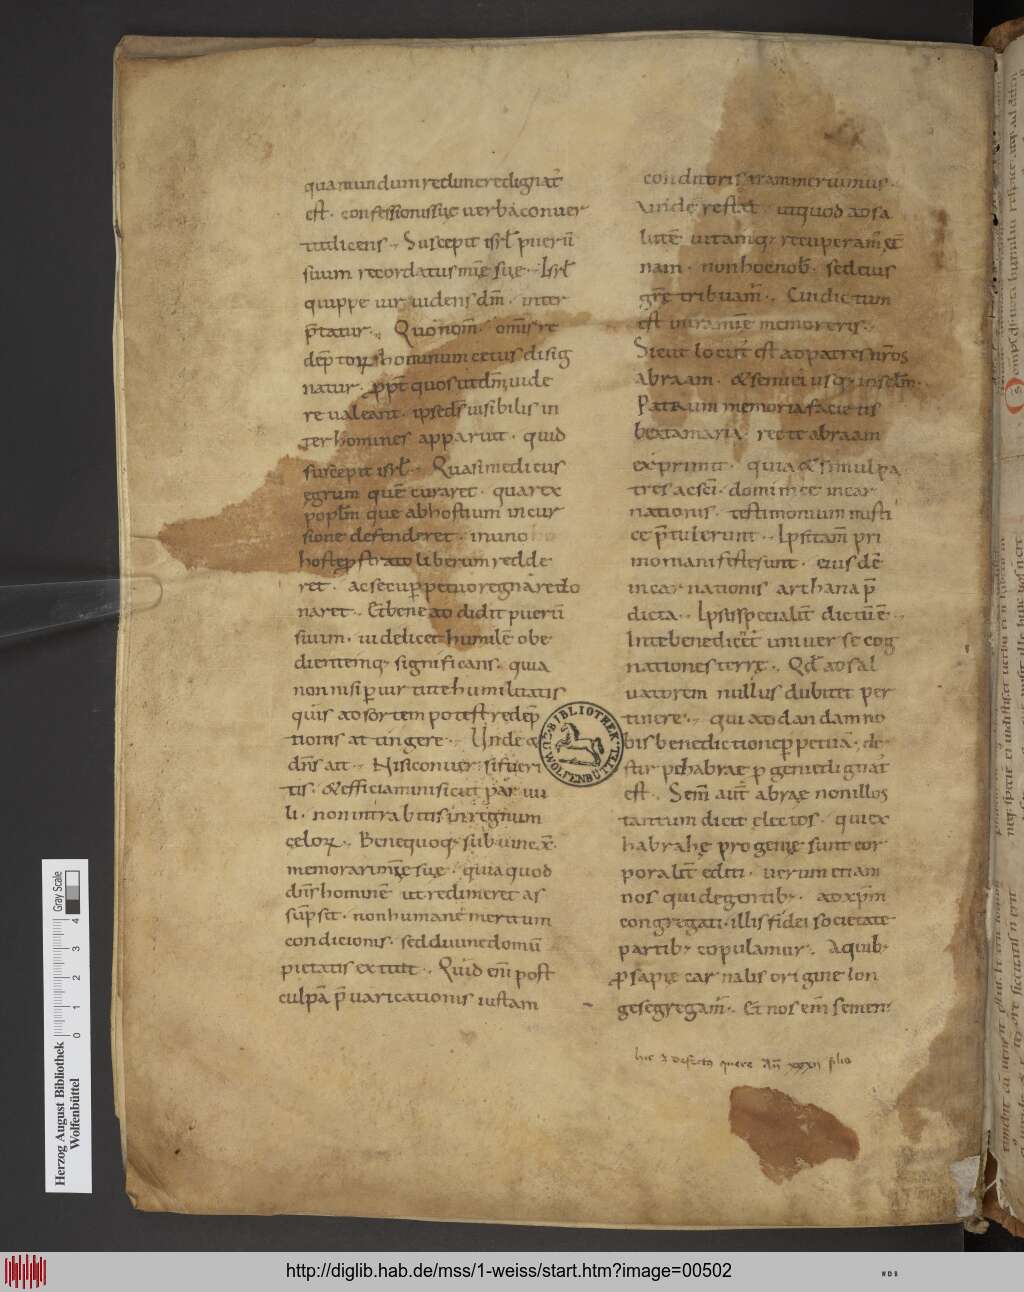 quamundum redimere dignat᷑
est · confessionis suę uerba conuer
tit dicens · Suscepit isrl̃ puerũ
suum recordatus mĩę suę · Isrl̃
quippe uir uidens dm̃ · inter
p̃tatur · Quo nom̃ · om̃s re
demptoꝝ hominum cetus disig
natur · ꝓpt̃ quos ut dm̃ uide
re ualeant · ipse ds̃ uisibilis in
ter homines apparuit · quid
suscepit isrl̃ · Quasi medicus
egrum quẽ curaret · quasi rex
poplm̃ quẽ ab hostium incur
sione defenderet · in uno
hoste ꝓstrato liberum redde
ret · ac secũ ꝑpetuo regnare do
naret · Et bene addidit puerũ
suum · uidelicet humilẽ obe
dientemq; significans · quia
non nisi ꝑ uirtutẽ humilitatis
quis ad sortem potest redẽp
tionis attingere · Unde &
dñs ait · Nisi conuersi fueri
tis · & efficiamini sicut paruu
li · non intrabitis in regnum
cęloꝝ · Bene quoq; subuinc̃
memorari mĩę suę · quia quod
dñs hominẽ ut redimeret as
sũpsit · non humane meritum
condicionis · sed diuine donũ
pietatis extitit · Quid em̃ post
culpã p̃uaricationis iustam
conditoris iram meruimus ·
Unde restat · ut quod ad sa
lutẽ uitamq; recuperam̃ ęt̃
nam · non hoc nob̃ · sed eius
gr̃ę tribuam̃ · Cui dictum
est in ira mĩę memoreris ·
Sicut locut᷑ est ad patres nr̃os
abraam · & semini eius usq; in sclm̃ ·
Patrum memoria facie̅s
beata maria · recte abraam
exprimit · quia & si multi pa
tres ac sc̃i · dominicę incar
nationis · testimonium misti
ce p̃tulerunt · Ipsi tam̃ pri
mo manifeste sunt · eius dẽ
incarnationis archana p̃
dicta · Ipsi specialit̃ dictũ ẽ ·
In te benedicẽt᷑ uniuerse cog
nationes terrę · Qd̃ ad sal
uatorem nullus dubitet per
tinere · qui ad dandam no
bis benedictionẽ ꝑpetuã · de
stirpe habrae ꝓgenie dignat᷑
est · Sem̃ aut̃ abrae non illos
tantum dicit electos · qui ex
habrahę progenię sunt cor
poralit̃ editi · uerum etiam
nos qui de gentib; · ad xp̃m
congregati · illis fidei societate
partib; copulamur · A quib;
ꝓsapię carnalis origine lon
ge segregam̃ · Et nos em̃ semen
hic ẽ defectus quere Añ xxxii folio
BIBLIOTHEK ZU WOLFENBÜTTEL
Gray Scale
4 3 2 1 0
Herzog August Bibliothek
Wolfenbüttel
http://diglib.hab.de/mss/1-weiss/start.htm?image=00502